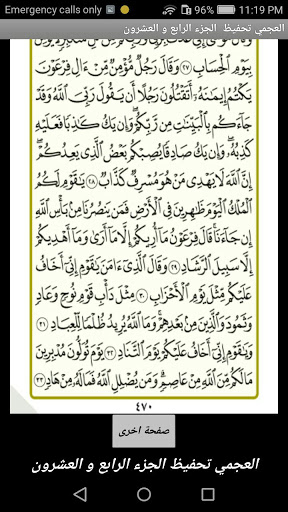 Emergency calls only
79%
11:19 PM
العجمي تحفيظ الجزء الرابع و العشرون
بِيَوْمِ ٱلْحِسَابِ ٢٧ وَقَالَ رَجُلٌ مُّؤْمِنٌ مِّنْ ءَالِ فِرْعَوْنَ
يَكْتُمُ إِيمَٰنَهُۥٓ أَتَقْتُلُونَ رَجُلًا أَن يَقُولَ رَبِّىَ ٱللَّهُ وَقَدْ
جَآءَكُم بِٱلْبَيِّنَٰتِ مِن رَّبِّكُمْ ۖ وَإِن يَكُ كَٰذِبًا فَعَلَيْهِ
كَذِبُهُۥ ۖ وَإِن يَكُ صَادِقًا يُصِبْكُم بَعْضُ ٱلَّذِى يَعِدُكُمْ ۖ
إِنَّ ٱللَّهَ لَا يَهْدِى مَنْ هُوَ مُسْرِفٌ كَذَّابٌ ٢٨ يَٰقَوْمِ لَكُمُ
ٱلْمُلْكُ ٱلْيَوْمَ ظَٰهِرِينَ فِى ٱلْأَرْضِ فَمَن يَنصُرُنَا مِنۢ بَأْسِ ٱللَّهِ
إِن جَآءَنَا ۚ قَالَ فِرْعَوْنُ مَآ أُرِيكُمْ إِلَّا مَآ أَرَىٰ وَمَآ أَهْدِيكُمْ
إِلَّا سَبِيلَ ٱلرَّشَادِ ٢٩ وَقَالَ ٱلَّذِىٓ ءَامَنَ يَٰقَوْمِ إِنِّىٓ أَخَافُ
عَلَيْكُم مِّثْلَ يَوْمِ ٱلْأَحْزَابِ ٣٠ مِثْلَ دَأْبِ قَوْمِ نُوحٍ وَعَادٍ
وَثَمُودَ وَٱلَّذِينَ مِنۢ بَعْدِهِمْ ۚ وَمَا ٱللَّهُ يُرِيدُ ظُلْمًا لِّلْعِبَادِ ٣١
وَيَٰقَوْمِ إِنِّىٓ أَخَافُ عَلَيْكُمْ يَوْمَ ٱلتَّنَادِ ٣٢ يَوْمَ تُوَلُّونَ مُدْبِرِينَ
مَا لَكُم مِّنَ ٱللَّهِ مِنْ عَاصِمٍ ۗ وَمَن يُضْلِلِ ٱللَّهُ فَمَا لَهُۥ مِنْ هَادٍ ٣٣
٤٧٠
صفحة اخرى
العجمي تحفيظ الجزء الرابع و العشرون